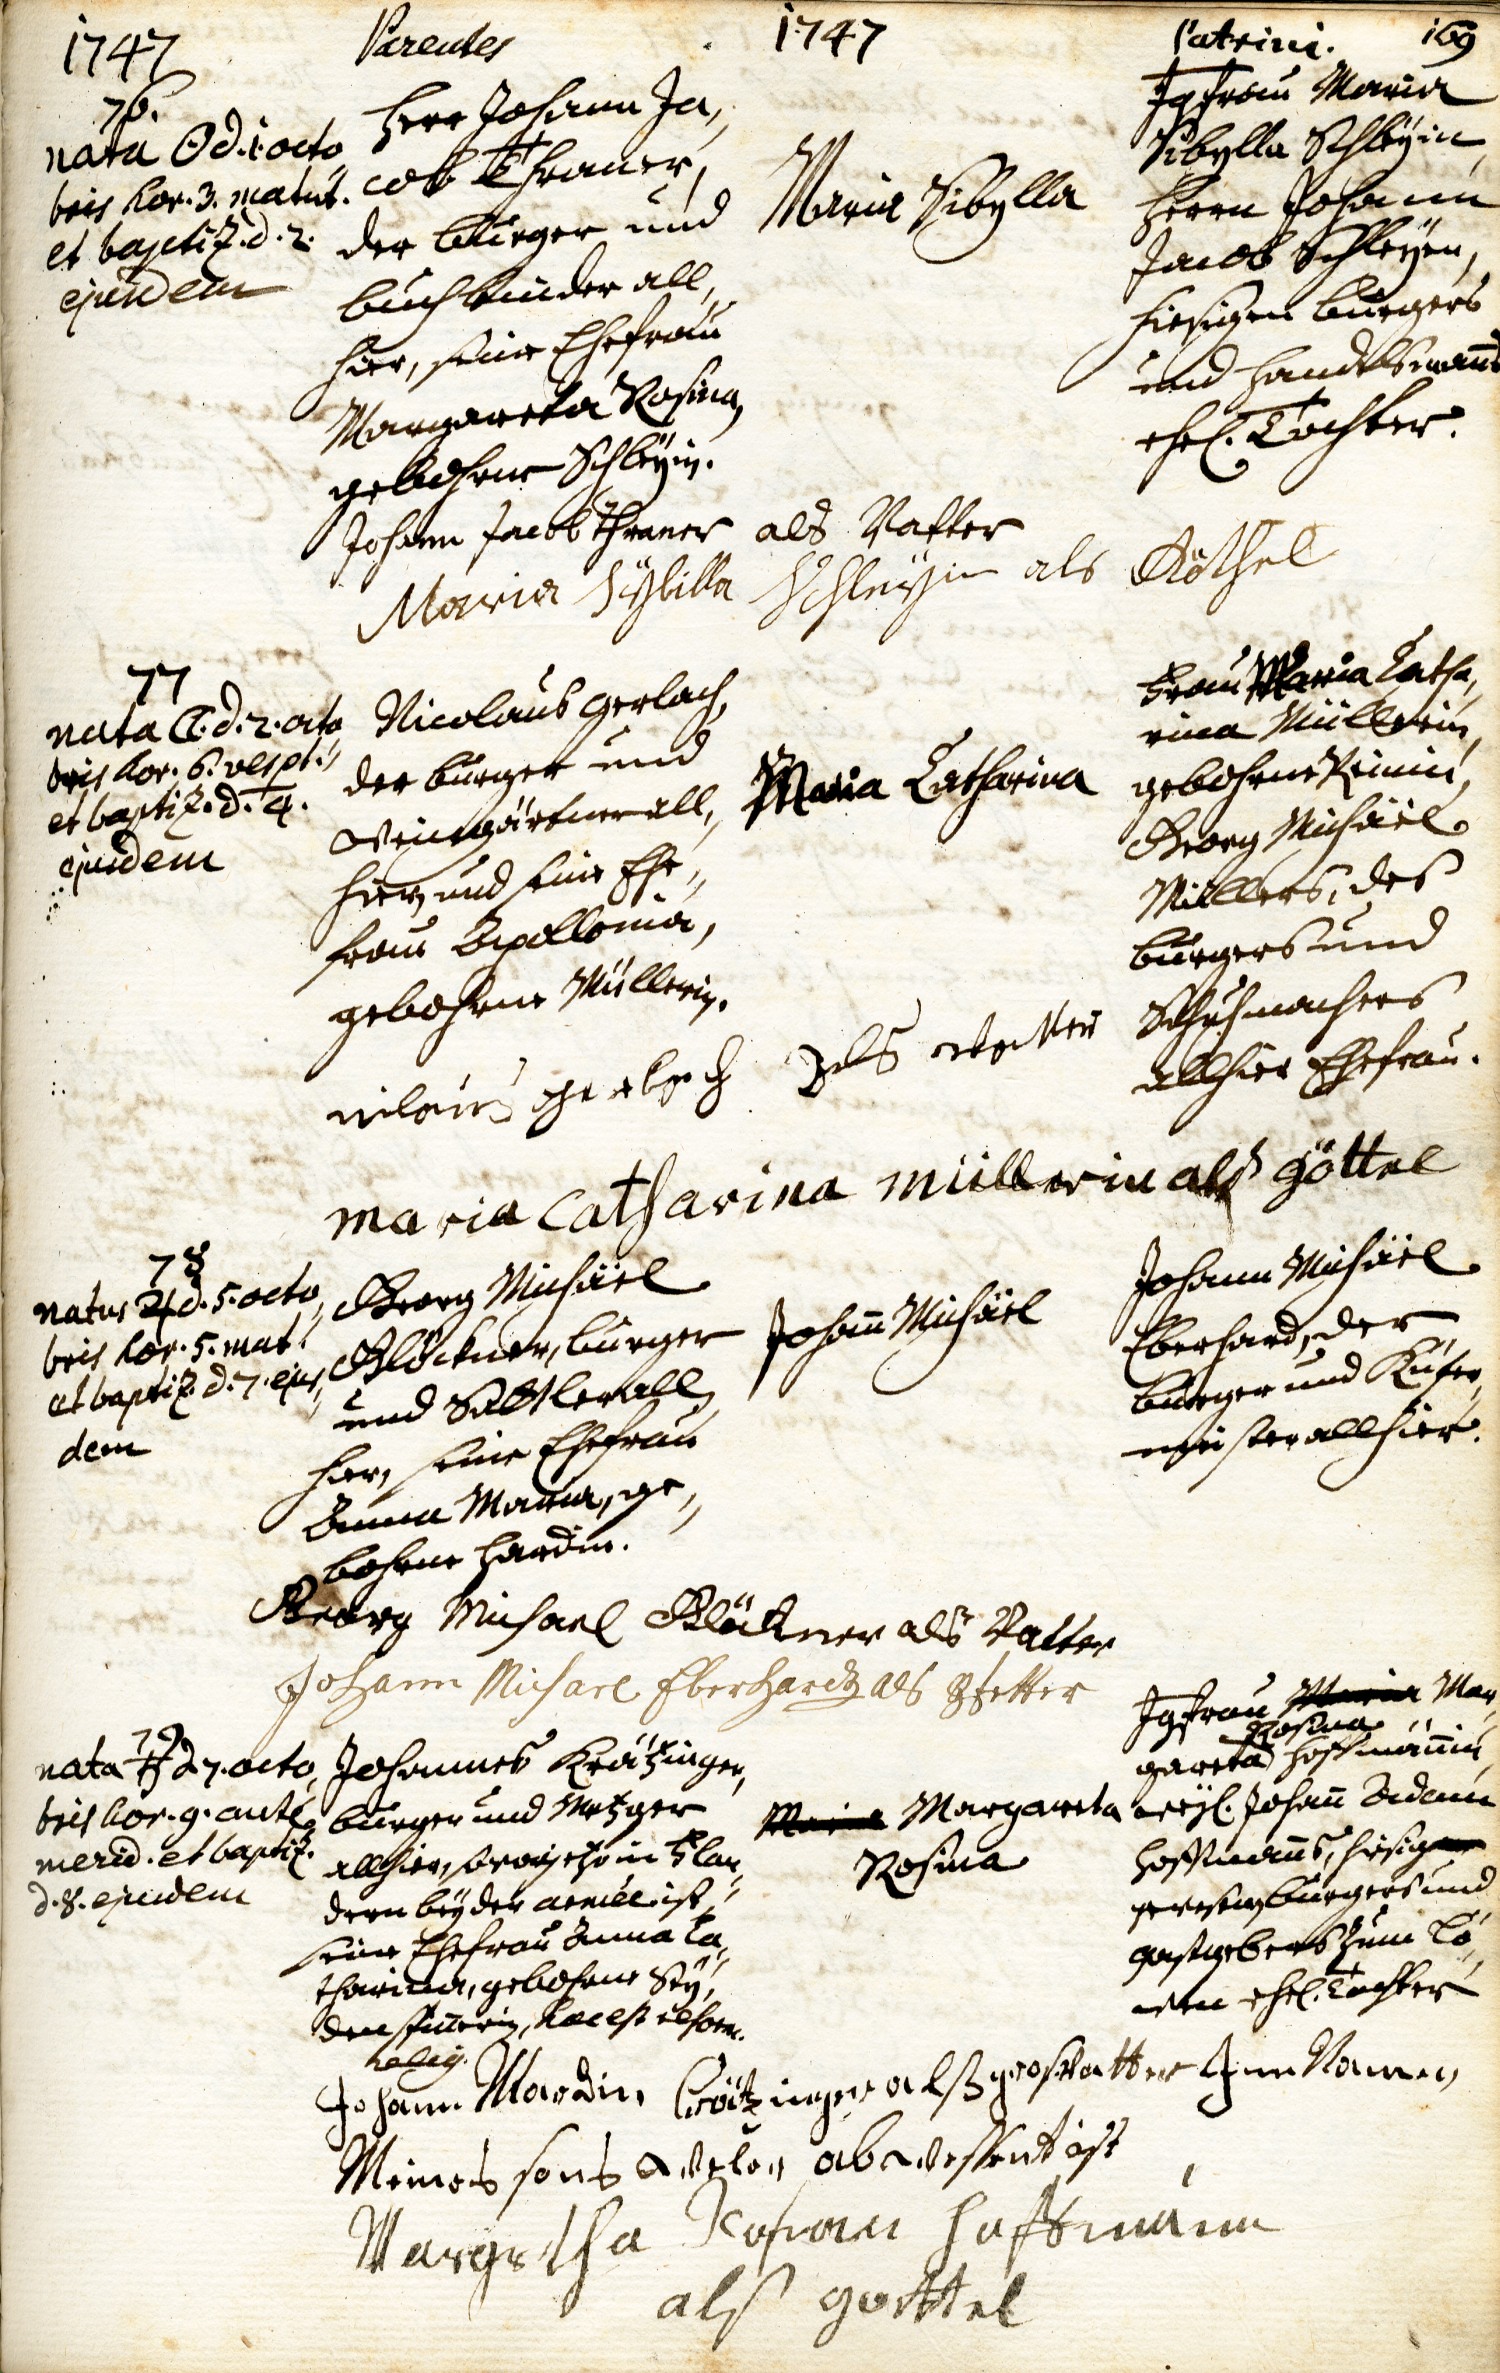 1747
Parentes
1747
Patrini.
169
76.
nata ☉ d. 1. octo
bris hor. 3. matut.
et baptiz. d. 2.
ejusdem
Herr Johann Ja,,
cob Thraner,
der burger und
buchbinder all,,
hier, seine Ehefrau
Margareta Rosina,
gebohrne Schleÿin.
Maria Sibylla
Jgfrau Maria
Sibylla Schleÿin,
Herrn Johann
Jacob Schleÿen,
hiesigen burgers
und handelsmanns
ehel. Tochter.
Johann Jacob Thraner als Vatter
Maria Sÿbilla Schleÿin als Göthel
77
nata ☾ d. 2. octo
bris hor. 6. vespt.
et baptiz. d. 4.
ejusdem
Nicolaus Gerlach,
der burger und
Weingärtner all,,
hier, und seine Ehe,,
frau Apollonia,
gebohrne Müllerin.
Maria Catharina
Frau Maria Catha,,
rina Müllerin,
gebohrne
Georg Michäel
Müllers, des
burgers und
Schuhmachers
allhier Ehefrau.
nilaus gerlach als vatter
maria Catharina müllerin alß göttel
78
natus ♃ d. 5. octo,,
bris hor. 5. mat.
et baptiz. d. 7. ejus,,
dem
Georg Michäel
Glöckner, burger
und Sattler all,,
hier, seine Ehefrau
Anna Maria, ge,,
bohrne Hardin.
Johann Michäel
Johann Michäel
Eberhard, der
burger und Küfer,,
meister allhier.
Georg Michael Glöckner als Vatter
Johann Michael Eberhardt als Pfetter
79
nata ♄ d. 7. octo,,
bris hor. 9. ante
merid. et baptiz.
d. 8. ejusdem
Johannes Krätzinger,
burger und Metzger
allhier, so jetzo in Flan,,
dern beÿ der armée ist,
seine Ehefrau Anna Ca,,
tharina, gebohrne Seÿ,,
denspinnerin, haec est reform.
relig.
Maria Margareta
Rosina
Jgfrau Maria Mar,,
Rosina
gareta Hoffmännin,
weÿl. Johann Adam
Hoffmanns, hiesig
gewesten burgers und
gastgebers zum Lö,,
wen ehel. Tochter
Johann Mardin Crätzinger alß großvatter Jm Namen
Meines sons welcher abwessent ist
Margretha Rosina Hoffmänin
alß gottel